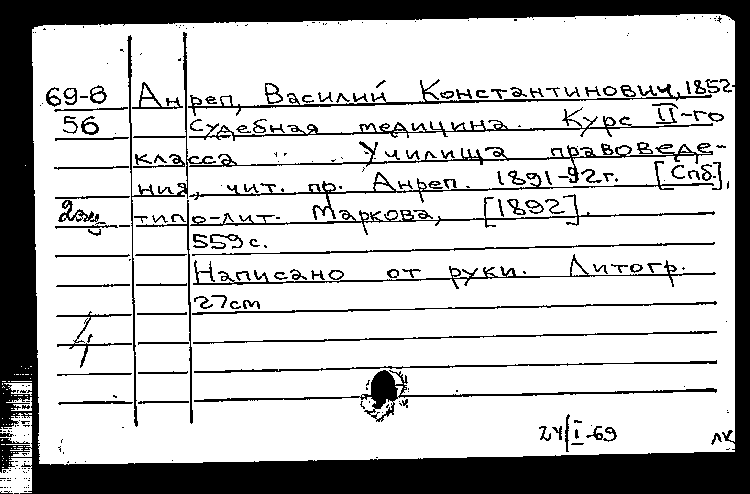 69-8 Анреп, Василий Константинович, 1852-
56 Судебная медицина. Курс II-го
класса Училища правоведе-
ния, чит. пр. Анреп. 1891-92 г. [Спб.],
2 экз типо-лит. Маркова, [1892].
559 с.
Написано от руки. Литогр.
27 cm
4
24/I-69
ЛК